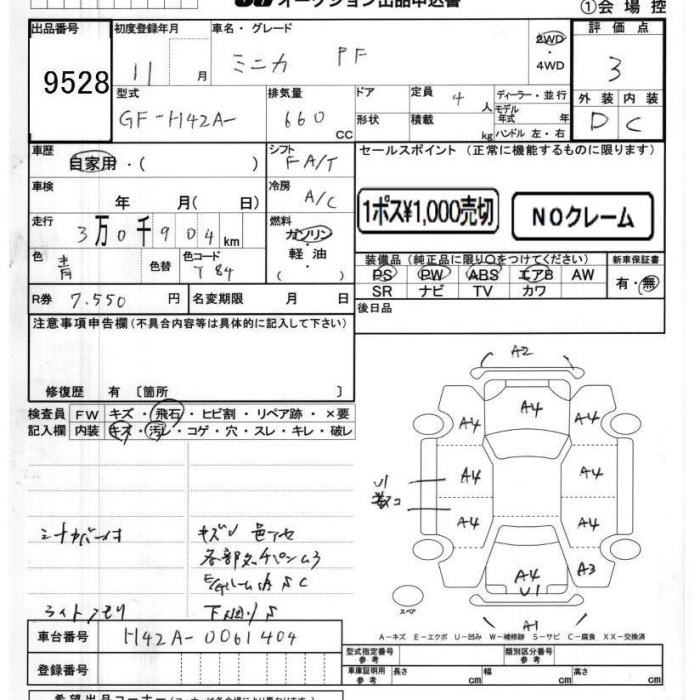 オークション出品申込書
①会場控
出品番号 初度登録年月 車名・グレード 評価点
9528 11 月 ミニカ PF 2WD・4WD 3
型式 排気量 ドア 定員 ディーラー・並行 外装 内装
GF-H42A- 660 CC 4 人 モデル年式 年 D C
形状 積載 kg ハンドル 左・右
車歴 シフト セールスポイント (正常に機能するものに限ります)
自家用・( ) FA/T
車検 冷房
年 月( 日) A/C
1ポス¥1,000売切 NOクレーム
走行 燃料
3万0千904km ガソリン・軽油・( )
色 色替 色コード 装備品(純正品に限り○をつけてください) 新車保証書
青 T84 PS PW ABS エアB AW 有・無
SR ナビ TV カワ
R券 7.550 円 名変期限 月 日 後日品
注意事項申告欄(不具合内容等は具体的に記入して下さい)
修復歴 有 〔箇所 〕
検査員記入欄 FW キズ・飛石・ヒビ割・リペア跡・×要
内装 キズ・汚レ・コゲ・穴・スレ・キレ・破レ
A2
A4
A4 A4
A4 A4
U1
A4 A4
A4 A3
U1
A1
シートカバー付 キズU 色アセ
ライトクモリ 下回りS
スペア
A-キズ E-エクボ U-凹み W-補修跡 S-サビ C-腐食 XX-交換済
車台番号 H42A-0061404
型式指定番号 参考 類別区分番号 参考
登録番号 車庫証明用 参考 長さ cm 幅 cm 高さ cm
希望出品コーナー